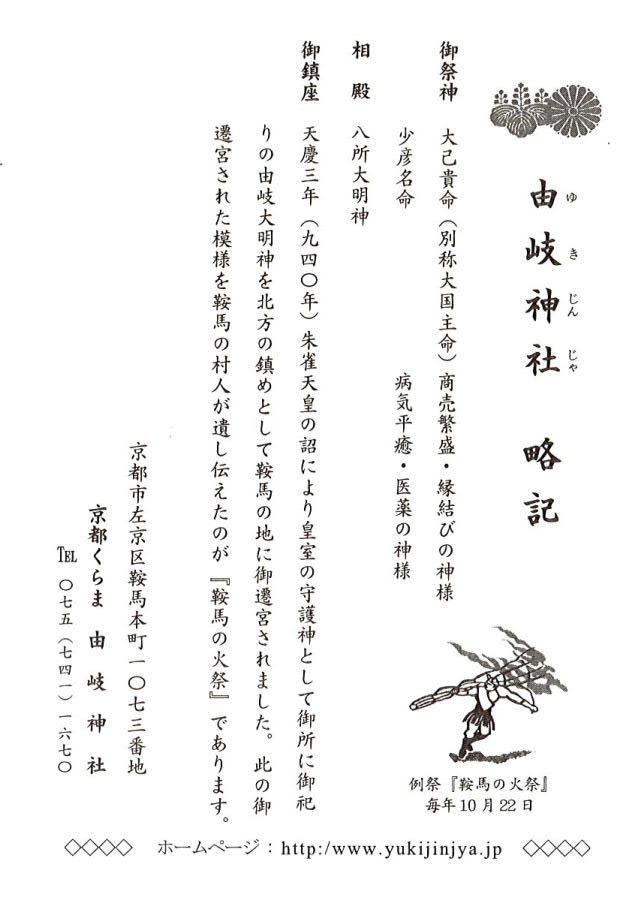 由岐神社 略記
ゆきじんじゃ
御祭神 大己貴命（別称大国主命）商売繁盛・縁結びの神様
少彦名命 病気平癒・医薬の神様
相殿 八所大明神
御鎮座 天慶三年（九四〇年）朱雀天皇の詔により皇室の守護神として御所に御祀
りの由岐大明神を北方の鎮めとして鞍馬の地に御遷宮されました。此の御
遷宮された模様を鞍馬の村人が遺し伝えたのが『鞍馬の火祭』であります。
京都市左京区鞍馬本町一〇七三番地
京都くらま 由岐神社
TEL 〇七五（七四一）一六七〇
例祭『鞍馬の火祭』
毎年10月22日
◇◇◇◇ ホームページ：http:/www.yukijinjya.jp ◇◇◇◇